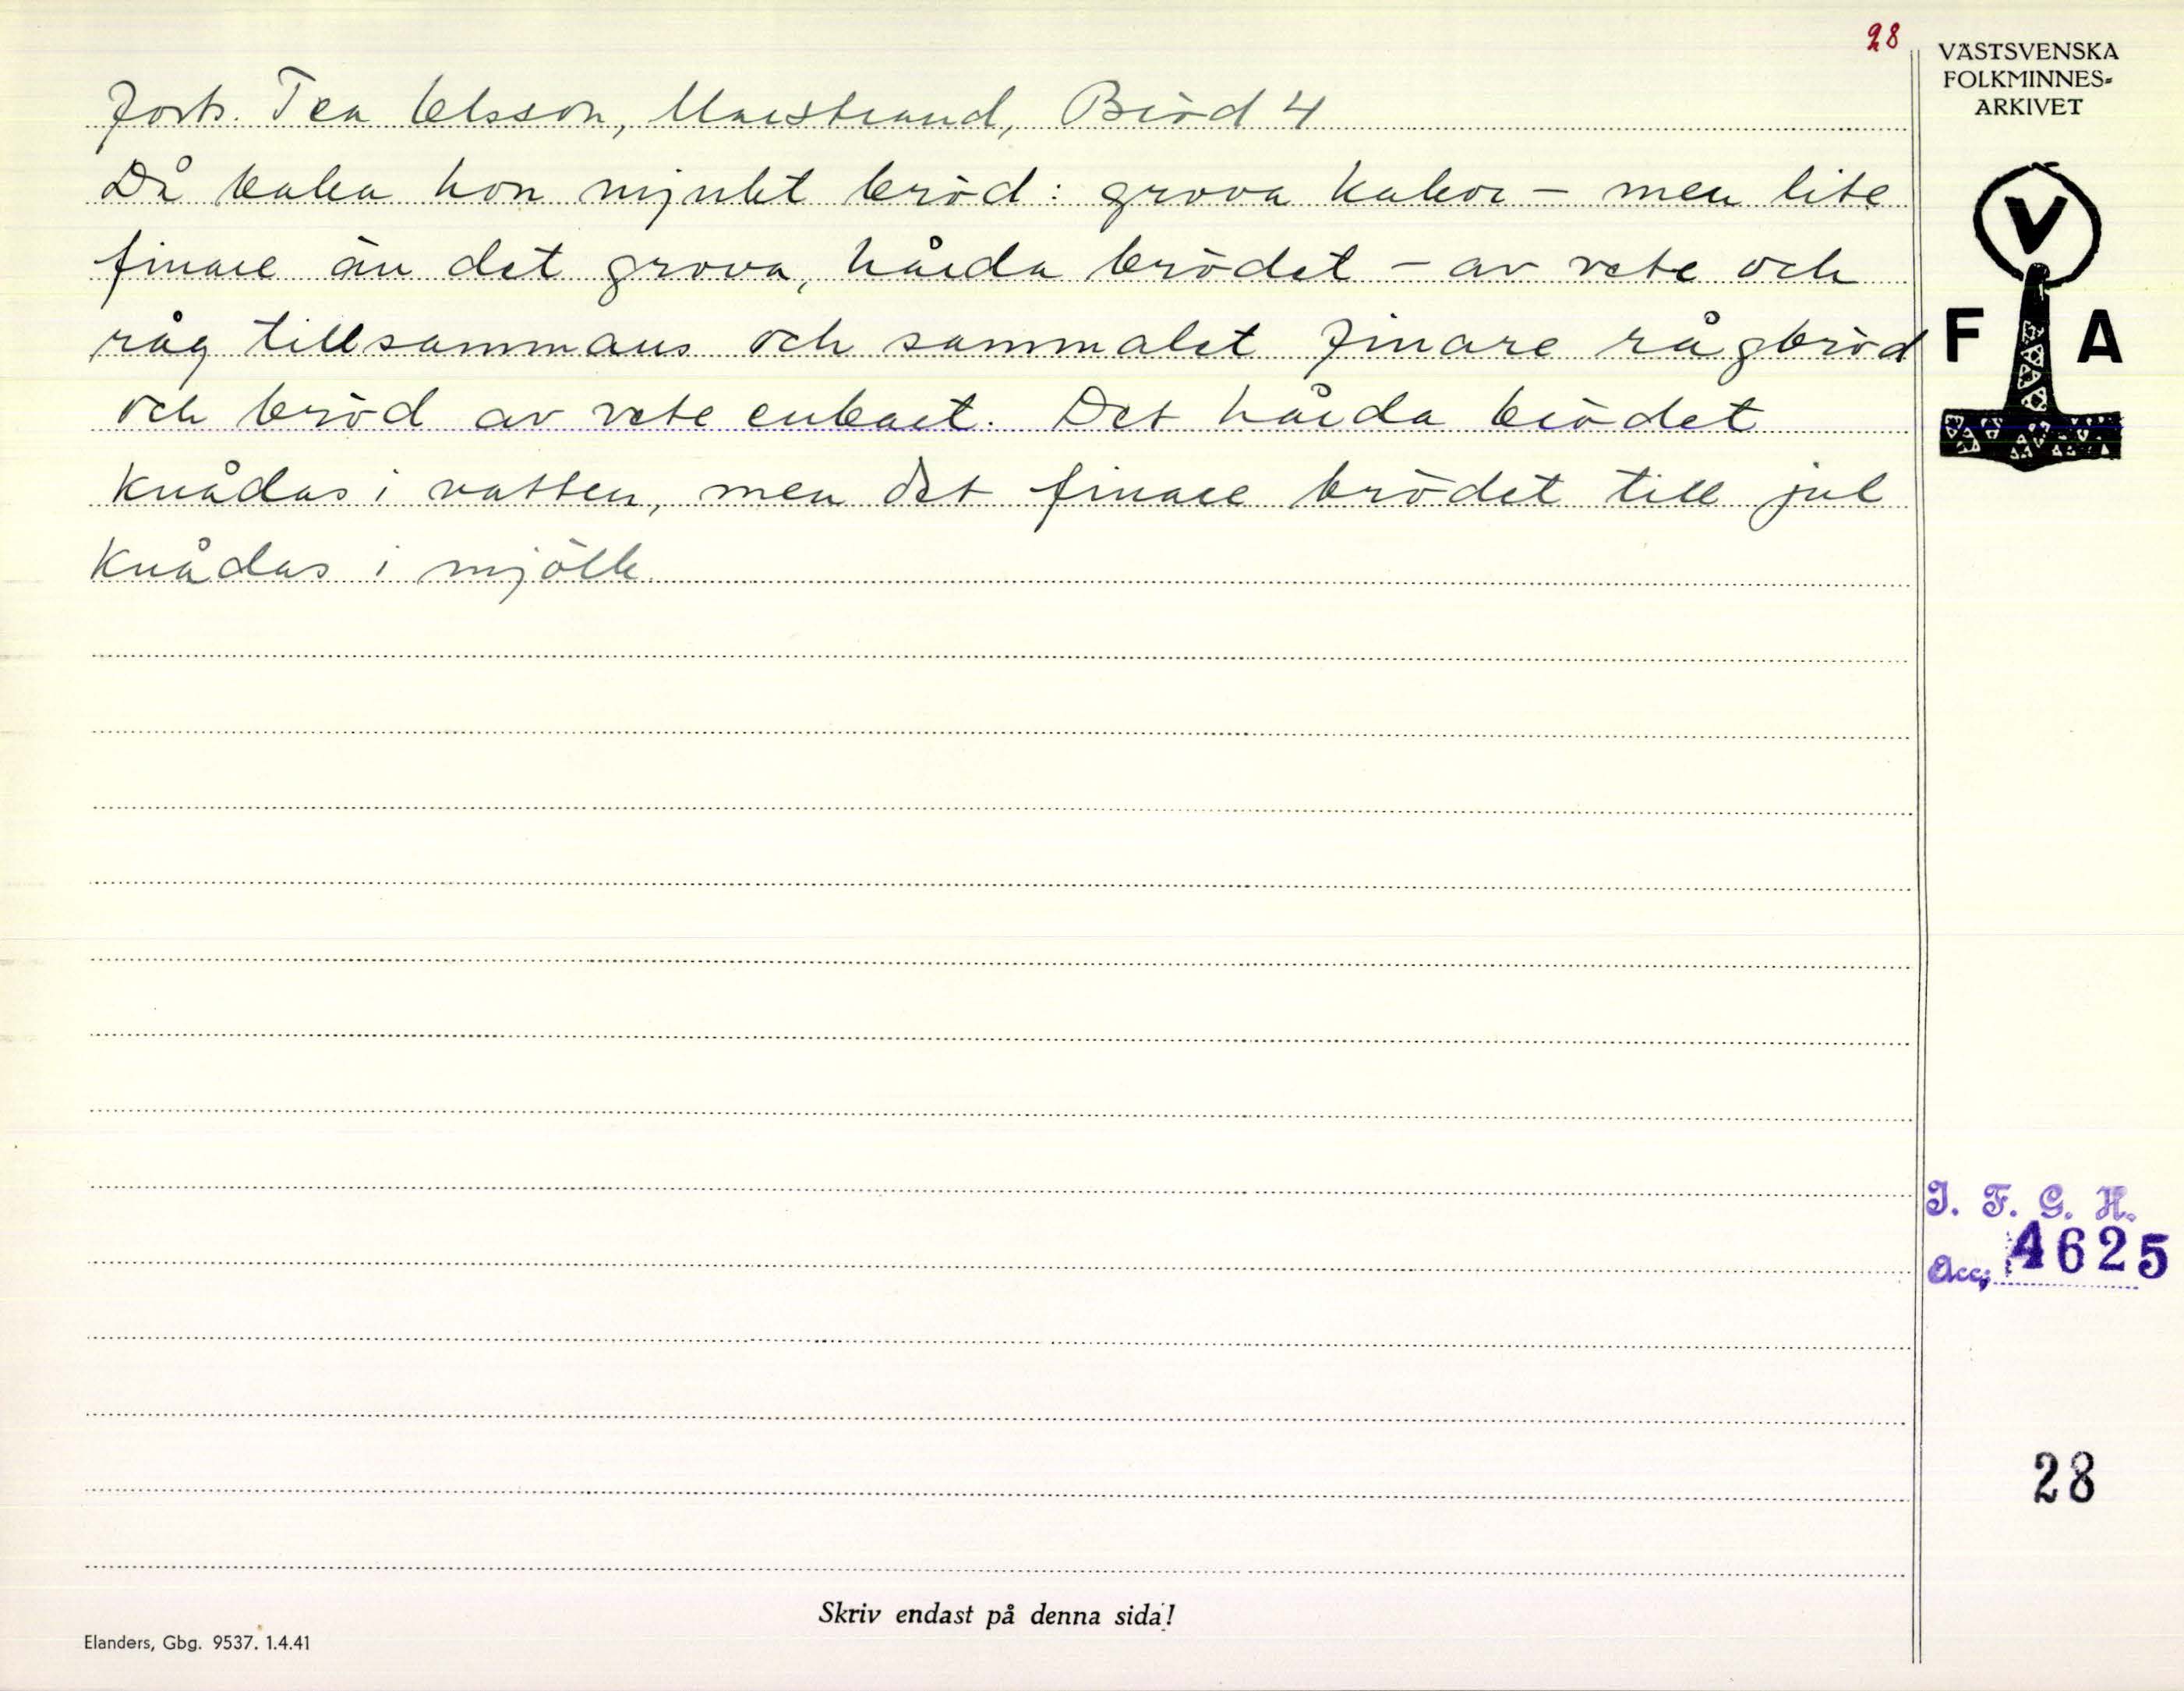 28
Forts. Tea Olsson, Marstrand, Bröd 4
Då baka hon mjukt bröd: grova kakor – men lite
finare än det grova, hårda brödet – av vete och
råg tillsammans och sammalet finare rågbröd
och bröd av vete enbart. Det hårda brödet
knådas i vatten, men det finare brödet till jul
knådas i mjölk
VÄSTSVENSKA
FOLKMINNES-
ARKIVET
V
F A
I. F. G. H.
Acc; 4625
28
Skriv endast på denna sida!
Elanders, Gbg. 9537. 1.4.41